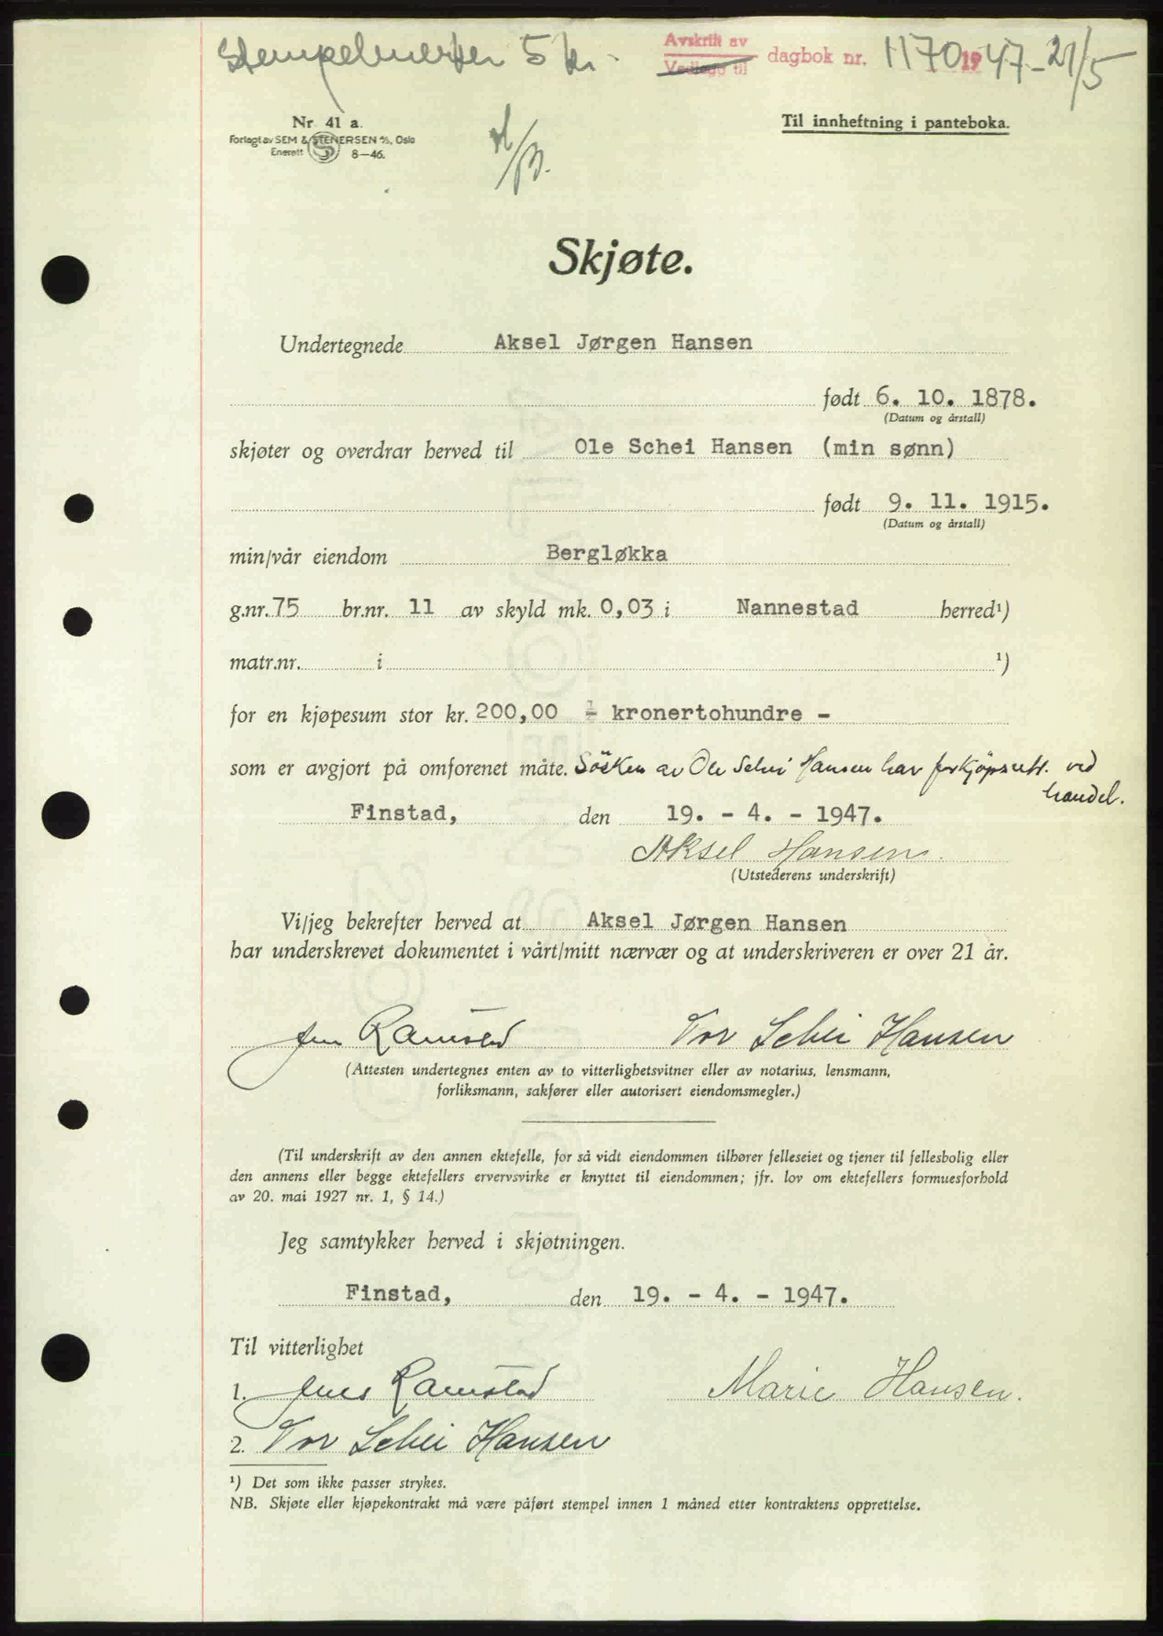 Stempelmerker 5 kr.
Avskrift av
Vedlegg til
dagbok nr. 1170 1947 - 21/5
Nr. 41 a.
Forlagt av SEM & STENERSEN A/S, Oslo
Enerett 8—46.
Til innheftning i panteboka.
Skjøte.
Undertegnede Aksel Jørgen Hansen
født 6. 10. 1878.
(Datum og årstall)
skjøter og overdrar herved til Ole Schei Hansen (min sønn)
født 9. 11. 1915.
(Datum og årstall)
min/vår eiendom Bergløkka
g.nr. 75 br.nr. 11 av skyld mk. 0,03 i Nannestad herred¹)
matr.nr. i ¹)
for en kjøpesum stor kr. 200,00 - kronertohundre -
som er avgjort på omforenet måte. Søsken av Ole Schei Hansen har forkjøpsrett. ved
handel.
Finstad, den 19. - 4. - 1947.
Aksel Hansen.
(Utstederens underskrift)
Vi/jeg bekrefter herved at Aksel Jørgen Hansen
har underskrevet dokumentet i vårt/mitt nærvær og at underskriveren er over 21 år.
Jens Ramstad Tor Schei Hansen
(Attesten undertegnes enten av to vitterlighetsvitner eller av notarius, lensmann,
forliksmann, sakfører eller autorisert eiendomsmegler.)
(Til underskrift av den annen ektefelle, for så vidt eiendommen tilhører felleseiet og tjener til fellesbolig eller
den annens eller begge ektefellers ervervsvirke er knyttet til eiendommen; jfr. lov om ektefellers formuesforhold
av 20. mai 1927 nr. 1, § 14.)
Jeg samtykker herved i skjøtningen.
Finstad, den 19. - 4. - 1947.
Til vitterlighet
1. Jens Ramstad Marie Hansen.
2. Tor Schei Hansen
¹) Det som ikke passer strykes.
NB. Skjøte eller kjøpekontrakt må være påført stempel innen 1 måned etter kontraktens opprettelse.